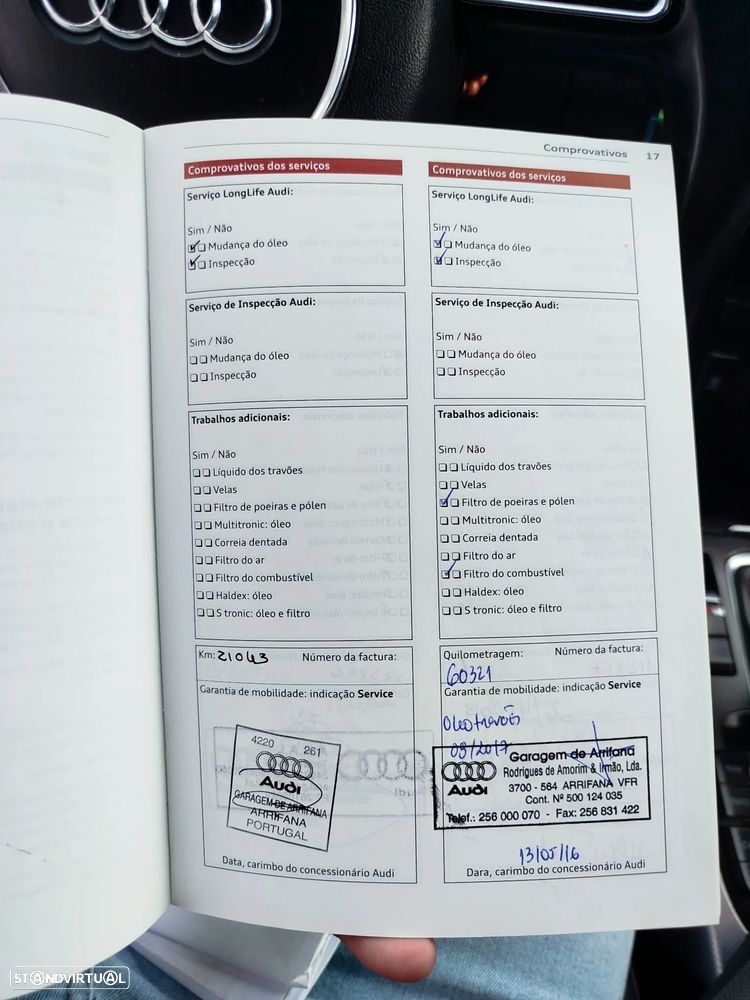 Comprovativos 17
Comprovativos dos serviços
Serviço LongLife Audi:
Sim / Não
Mudança do óleo
Inspecção
Serviço de Inspecção Audi:
Sim / Não
Mudança do óleo
Inspecção
Trabalhos adicionais:
Sim / Não
Líquido dos travões
Velas
Filtro de poeiras e pólen
Multitronic: óleo
Correia dentada
Filtro do ar
Filtro do combustível
Haldex: óleo
S tronic: óleo e filtro
Km: 21043 Número da factura:
Garantia de mobilidade: indicação Service
4220 261
Audi
GARAGEM DE ARRIFANA
ARRIFANA
PORTUGAL
Data, carimbo do concessionário Audi
Comprovativos dos serviços
Serviço LongLife Audi:
Sim / Não
Mudança do óleo
Inspecção
Serviço de Inspecção Audi:
Sim / Não
Mudança do óleo
Inspecção
Trabalhos adicionais:
Sim / Não
Líquido dos travões
Velas
Filtro de poeiras e pólen
Multitronic: óleo
Correia dentada
Filtro do ar
Filtro do combustível
Haldex: óleo
S tronic: óleo e filtro
Quilometragem: Número da factura:
60321
Garantia de mobilidade: indicação Service
Oleo travões
08/2017
Garagem de Arrifana
Rodrigues de Amorim & Irmão, Lda.
Audi
3700 - 564 ARRIFANA VFR
Cont. Nº 500 124 035
Telef.: 256 000 070 - Fax: 256 831 422
13/05/16
Dara, carimbo do concessionário Audi
STANDVIRTUAL